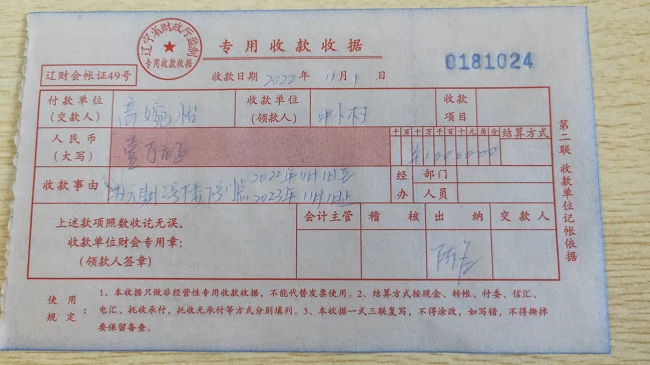 辽宁省财政厅监制
专用收款收据
专用收款收据
0181024
辽财会帐证49号
收款日期 2022年 11月1日
付款单位
(交款人)
高婉怡
收款单位
(领款人)
收款
项目
人民币
(大写)
壹万
千百十万千百十元角分
¥1000000
结算方式
收款事由
2022年11月1日至
2023年11月1日止
经办
部门
人员
上述款项照数收讫无误。
收款单位财会专用章:
(领款人签章)
会计主管
稽核
出纳
交款人
第二联 收款单位记帐依据
使用规定:
1、本收据只做非经营性专用收款收据,不能代替发票使用。2、结算方式按现金、转帐、付委、信汇、
电汇、托收承付,托收无承付等方式分别填列。3、本收据一式三联复写,不得涂改,如写错,不得撕掉
要保留备查。